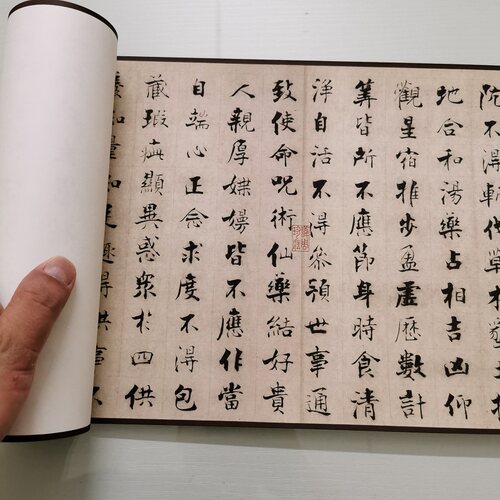 不得
地合和湯藥占相吉凶仰
觀星宿推步盈虛歷數計
筭皆所不應節身時食清
淨自活不得參預世事通
致使命呪術仙藥結好貴
人親厚媟嫚皆不應作當
自端心正念求度不得包
藏瑕疵顯異惑衆於四供
養知量知足趣得供事不